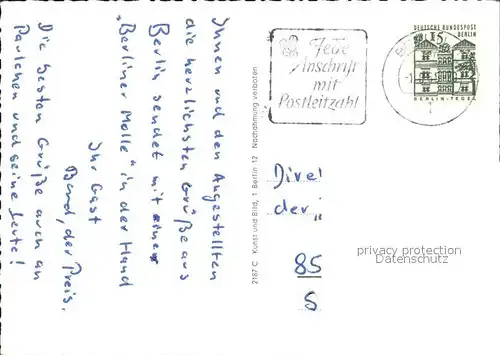 Ihnen und den Angestellten
die herzlichsten Grüße aus
Berlin sendet mit einer
„Berliner Molle“ in der Hand
Ihr Gast
Bund, der Preis.
Die besten Grüße auch an
Paulchen und seine Leute!
2187 C Kunst und Bild, 1 Berlin 12 Nachahmung verboten
Jede
Anschrift
mit
Postleitzahl
DEUTSCHE BUNDESPOST
15 BERLIN
BERLIN-TEGEL
Dire
der
85
privacy protection
Datenschutz